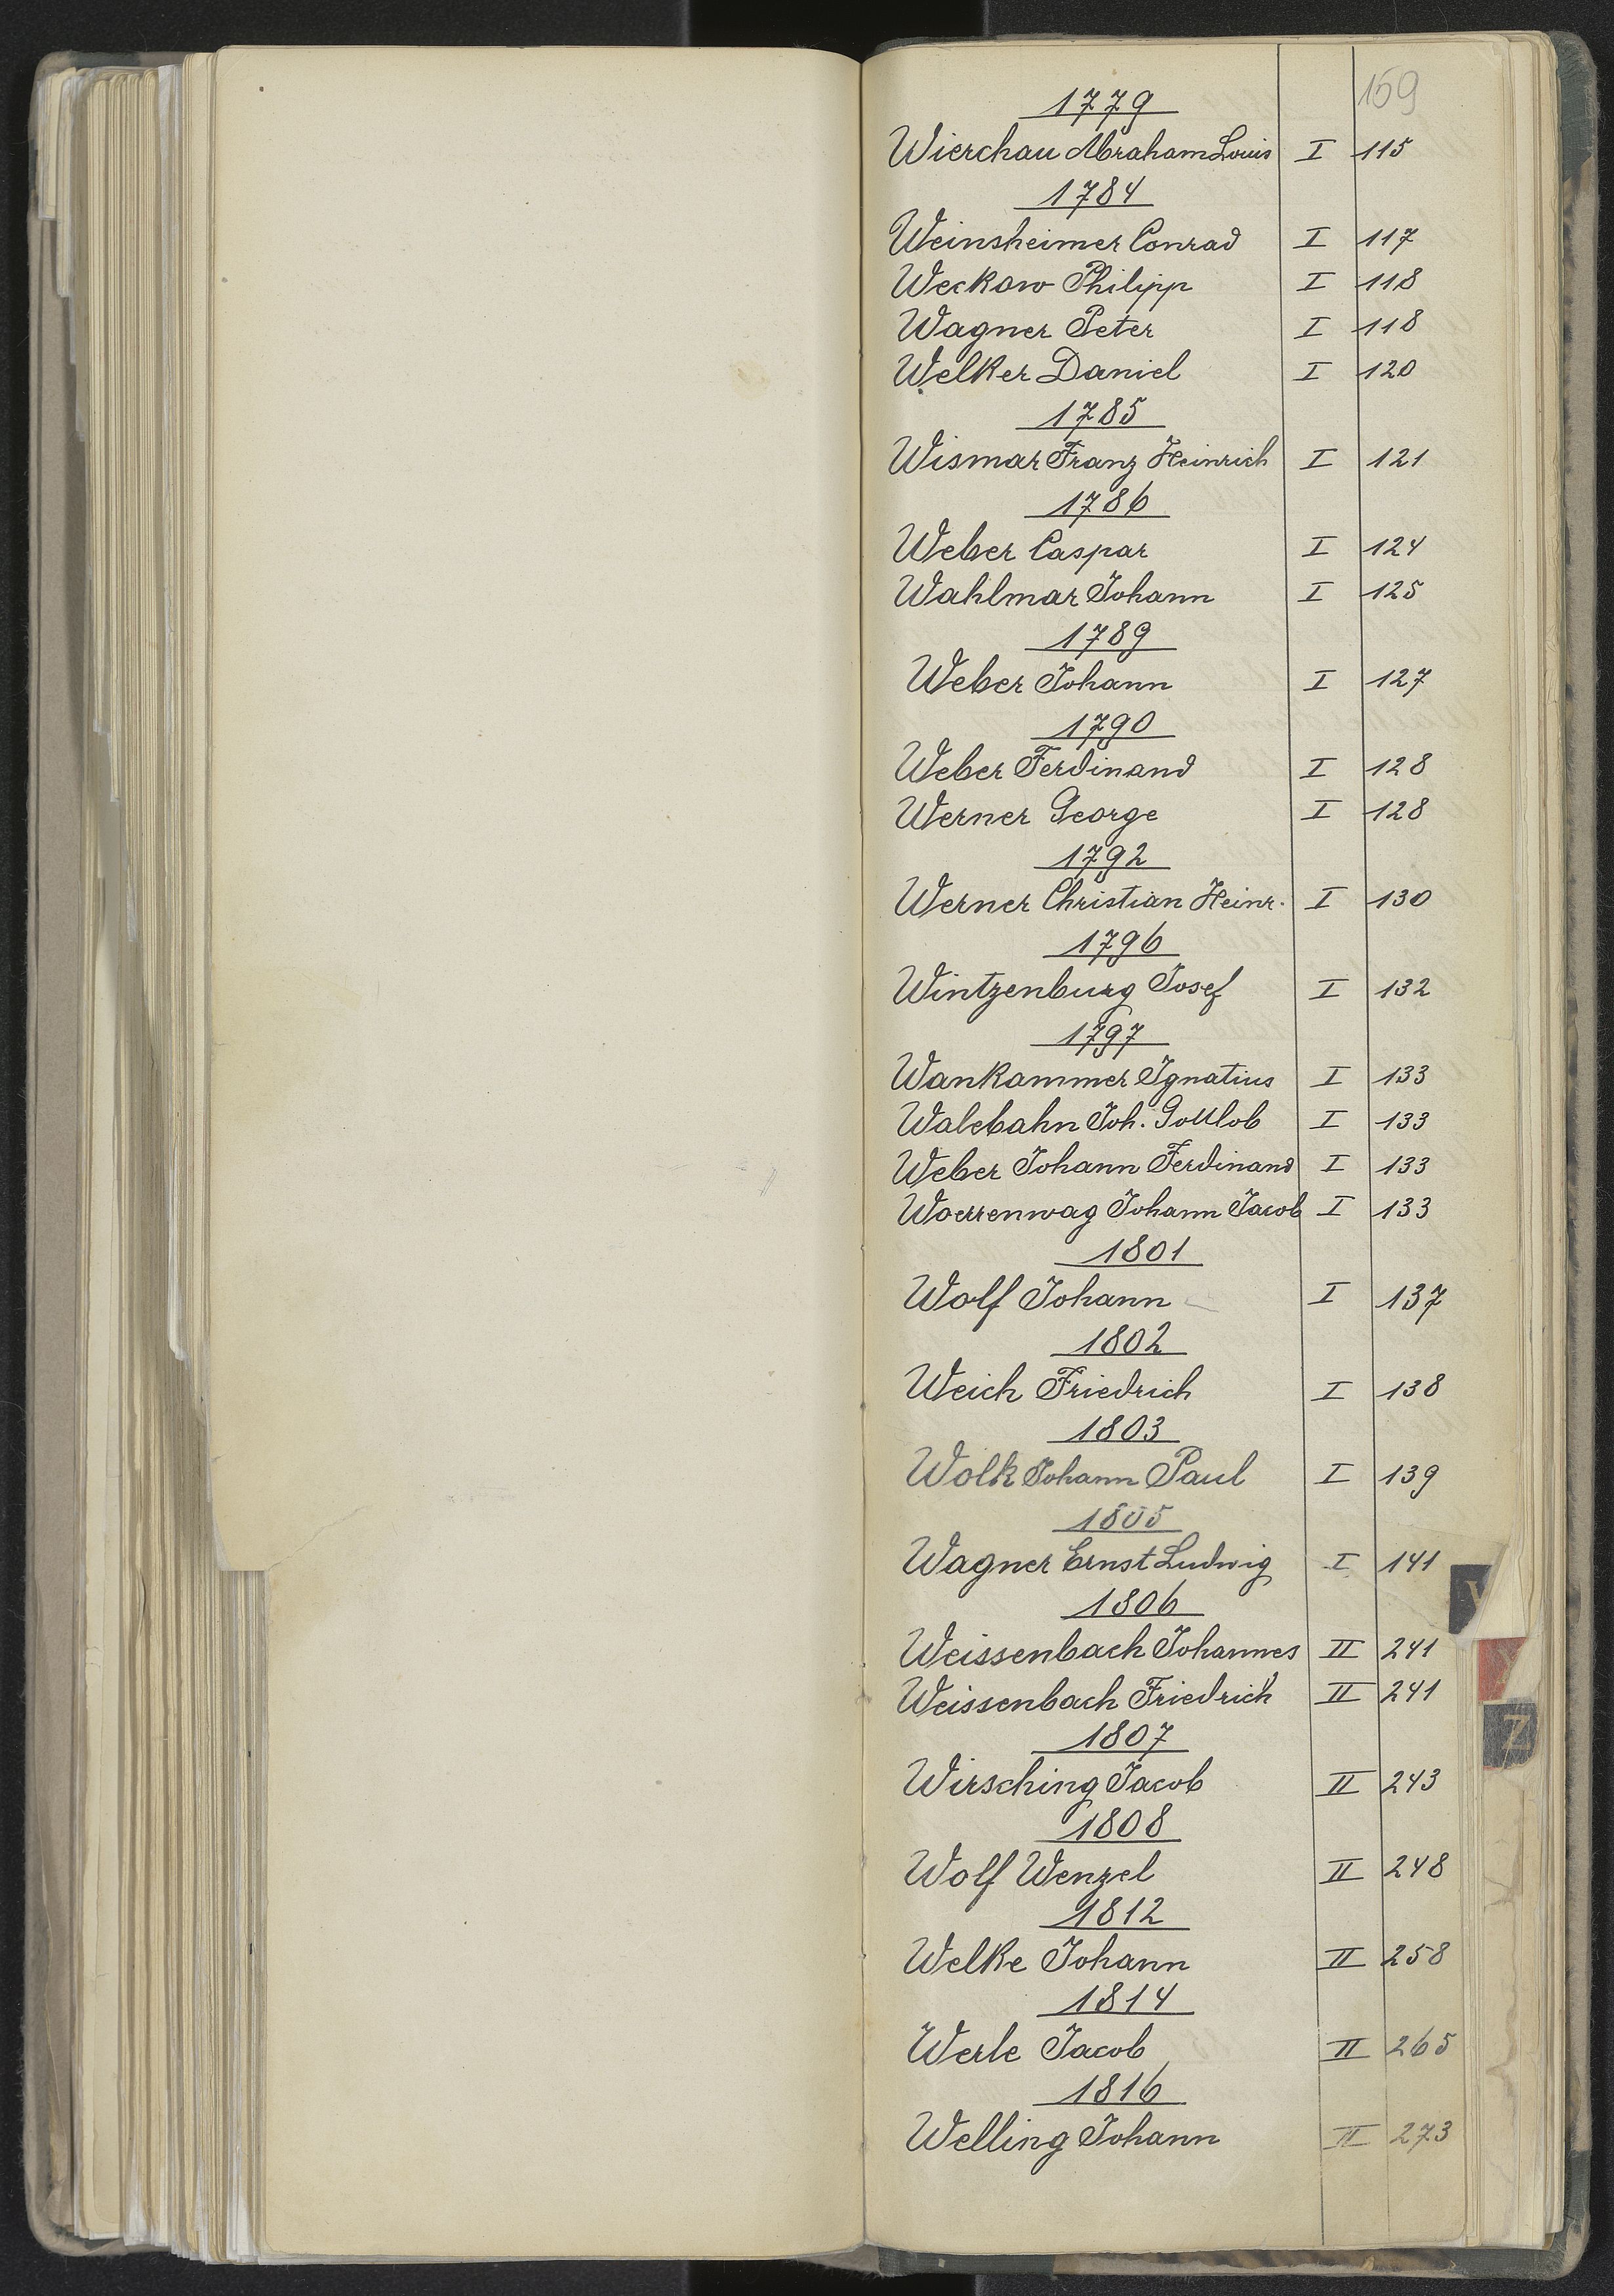 159
1779
Wierchau Abraham Louis I 115
1784
Weinsheimer Conrad I 117
Weckow Philipp I 118
Wagner Peter I 118
Welker Daniel I 120
1785
Wismar Franz Heinrich I 121
1786
Weber Caspar I 124
Wahlmar Johann I 125
1789
Weber Johann I 127
1790
Weber Ferdinand I 128
Werner George I 128
1792
Werner Christian Heinr. I 130
1796
Wintzenburg Josef I 132
1797
Wankammer Ignatius I 133
Walebahn Joh. Gottlob I 133
Weber Johann Ferdinand I 133
Woerrenwag Johann Jacob I 133
1801
Wolf Johann I 137
1802
Weich Friedrich I 138
1803
Wolk Johann Paul I 139
1805
Wagner Ernst Ludwig I 141
1806
Weissenbach Johannes II 241
Weissenbach Friedrich II 241
1807
Wirsching Jacob II 243
1808
Wolf Wenzel II 248
1812
Welke Johann II 258
1814
Werle Jacob II 265
1816
Welling Johann II 273
Z